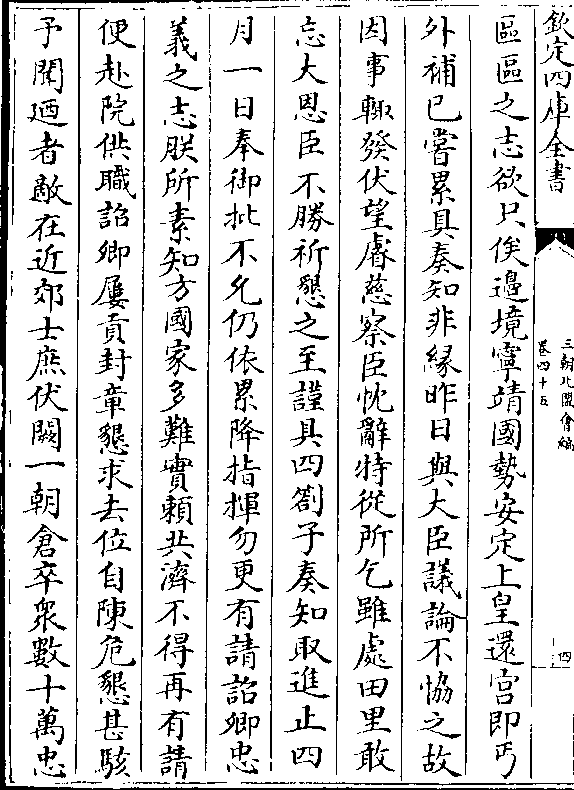 欽定四庫全書
三朝北盟會編
卷四十五
四
區區之志欲只俟邊境寧靖國勢安定上皇還宫即丐
外補已嘗累具奏知非緣昨日與大臣議論不恊之故
因事輙發伏望睿慈察臣忱辭特從所乞雖處田里敢
忘大恩臣不勝祈懇之至謹具四劄子奏知取進止四
月一日奉御批不允仍依累降指揮勿更有請詔卿忠
義之志朕所素知方國家多難實賴共濟不得再有請
便赴院供職詔卿屢貢封章懇求去位自陳危懇甚駭
予聞廼者敵在近郊士庶伏闕一朝倉卒衆數十萬忠